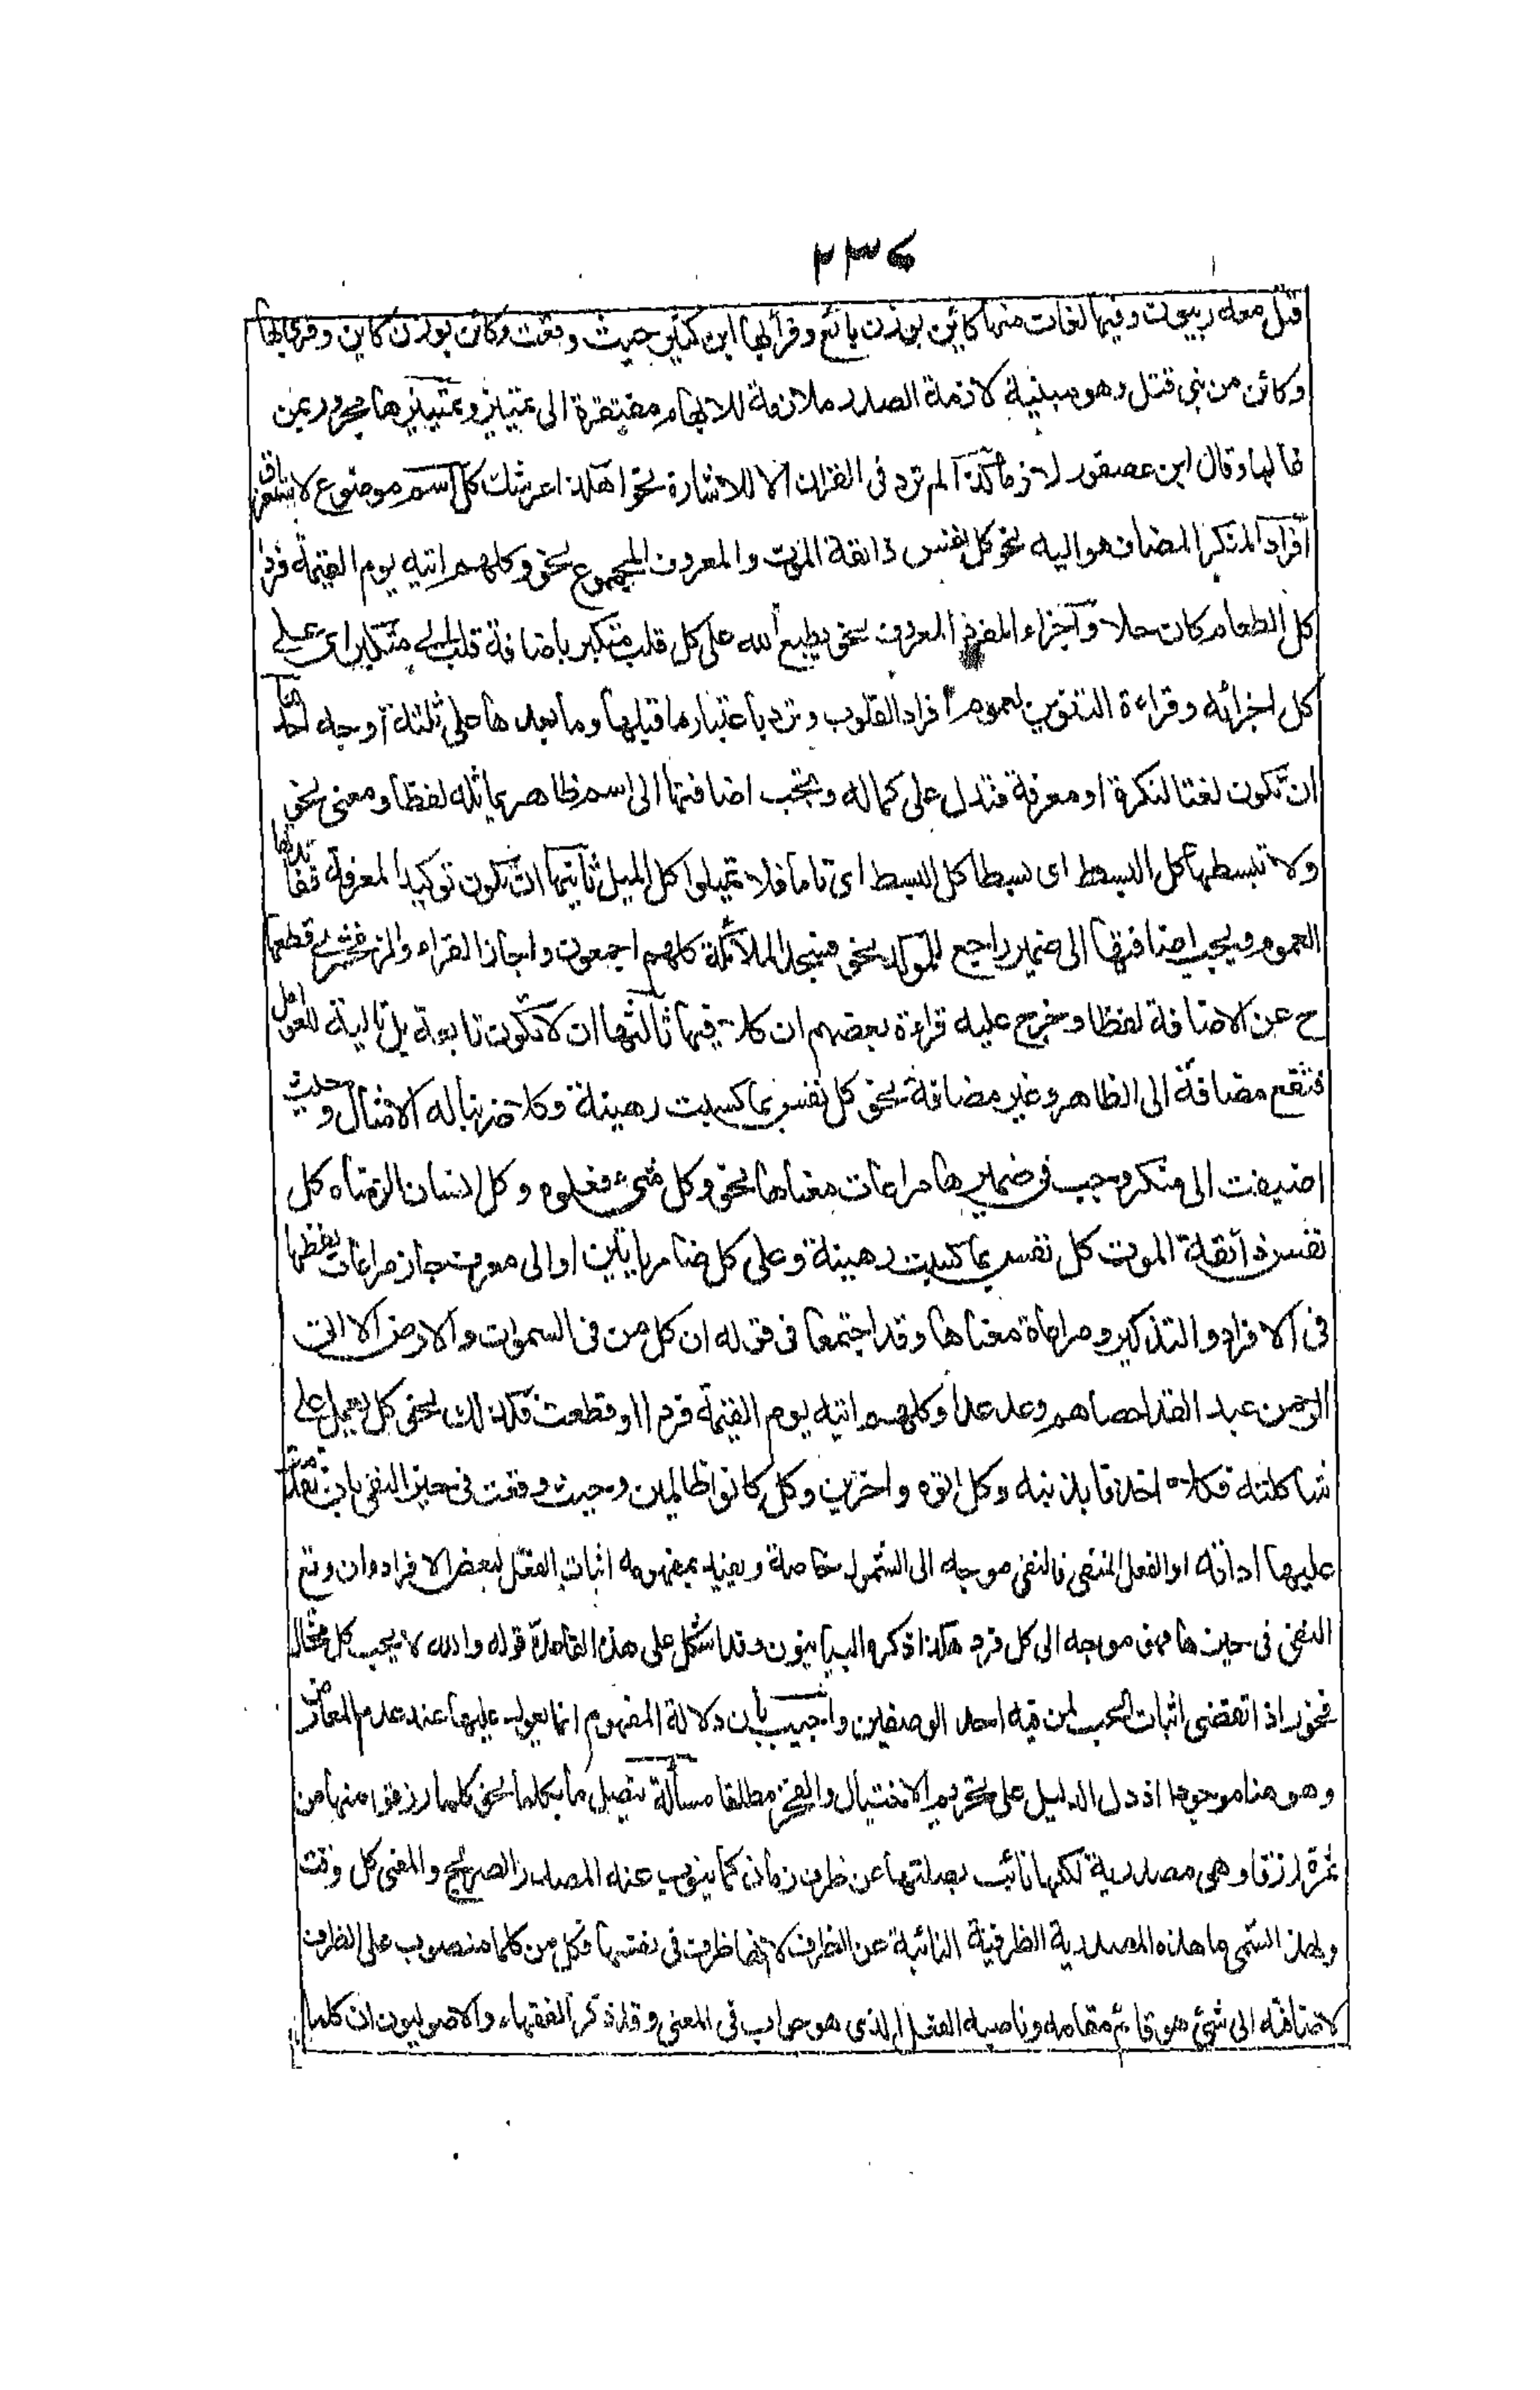 ٢٣٤
قتل معه ربيون وفيها لغات منها كائن بوزن بائع وقرأ بها ابن كثير حيث وقعت وكائن بوزن كاين وقرئ بها
وكائن من نبي قتل وهو مبنية لازمة الصدر ملازمة للابهام مفتقرة الى تمييز وتمييزها مجرور بمن
غالبا وقال ابن عصفور لازما كذا لم ترد فى القران الا للاشارة نحو اهكذا عرشك كل اسم موضوع لاستغراق
افراد المنكر المضاف هو اليه نحو كل نفس ذائقة الموت والمعروف المجموع نحو وكلهم اتيه يوم القيمة فردا
كل الطعام كان حلا واجزاء المفرد المعرف نحو يطبع الله على كل قلب متكبر باضافة قلب الى متكبر اى على
كل اجزائه وقراءة التنوين لعموم افراد القلوب وترد باعتبار ما قبلها وما بعدها على ثلثة اوجه احدها
ان تكون نعتا لنكرة او معرفة فتدل على كماله وتجب اضافتها الى اسم ظاهر يماثله لفظا ومعنى نحو
ولا تبسطها كل البسط اى بسطا كل البسط اى تاما فلا تميلوا كل الميل ثانيها ان تكون توكيدا لمعرفة ففائدتها
العموم ويجب اضافتها الى ضمير راجع للموكد نحو فسجد الملائكة كلهم اجمعون واجاز الفراء والزمخشرى قطعها
ح عن الاضافة لفظا وخرج عليه قراءة بعضهم ان كلا فيها ثالثها ان لا تكون تابعة بل تالية للعوامل
فتقع مضافة الى الظاهر وغير مضافة نحو كل نفس بما كسبت رهينة وكلا ضربنا له الامثال وحيث
اضيفت الى منكر وجب فى ضميرها مراعات معناها نحو وكل شىء فعلوه وكل انسان الزمناه كل
نفس ذائقة الموت كل نفس بما كسبت رهينة وعلى كل ضامر ياتين او الى معرف جاز مراعات لفظها
فى الافراد والتذكير ومراعاة معناها وقد اجتمعا فى قوله ان كل من فى السموات والارض الا اتى
الرحمن عبد القد احصاهم وعد عدا وكلهم اتيه يوم القيمة فردا او قطعت فكذلك نحو كل يعمل على
شاكلته فكلا اخذنا بذنبه وكل اتوه واخرين وكل كانوا ظالمين وحيث وقعت فى حيز النفى بان تقدمت
عليها اداته او الفعل المنفى فالنفى موجه الى الشمول خاصة ويفيد بمفهومه اثبات الفعل لبعض الافراد وان وقع
النفى فى حيزها فهو موجه الى كل فرد هكذا ذكره البيانيون وقد اشكل على هذه القاعدة قوله والله لا يحب كل مختال
فخور اذ اتقضى اثبات الحب لمن فيه احد الوصفين واجيب بان دلالة المفهوم انما يعول عليها عند عدم المعارض
وهو هنا موجود اذ دل الدليل على تحريم الاختيال والفخر مطلقا مسألة تتصل ما بكل نحو كلما رزقوا منها من
ثمرة رزقا وهى مصدرية لكنها نائب بصلتها عن ظرف زمان كما ينوب عنه المصدر الصريح والمعنى كل وقت
ولهذا تسمى ما هذه المصدرية الظرفية النائبة عن الظرف لا انها ظرف فى نفسها فكل من كلما منصوب على الظرف
لاضافته الى شئ هو قائم مقامه وناصبه الفعل الذى هو جواب فى المعنى وقد ذكر الفقهاء والاصوليون ان كلما